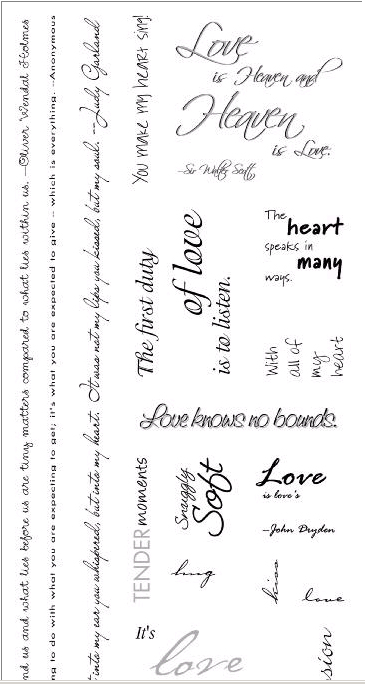 nd us and what lies before us are tiny matters compared to what lies within us. —Oliver Wendal Holmes
ng to do with what you are expecting to get; it's what you are expected to give -- which is everything. --Anonymous
into my ear you whispered, but into my heart. It was not my lips you kissed, but my soul. --Judy Garland
You make my heart sing!
Love
is Heaven and
Heaven
is Love.
—Sir Walter Scott
The first duty
of love
is to listen.
The heart
speaks in
many
ways.
With
all of
my
heart
Love knows no bounds.
TENDER moments
Snuggly
Soft
Love
is love's
—John Dryden
hug
kiss
love
It's
love
sion